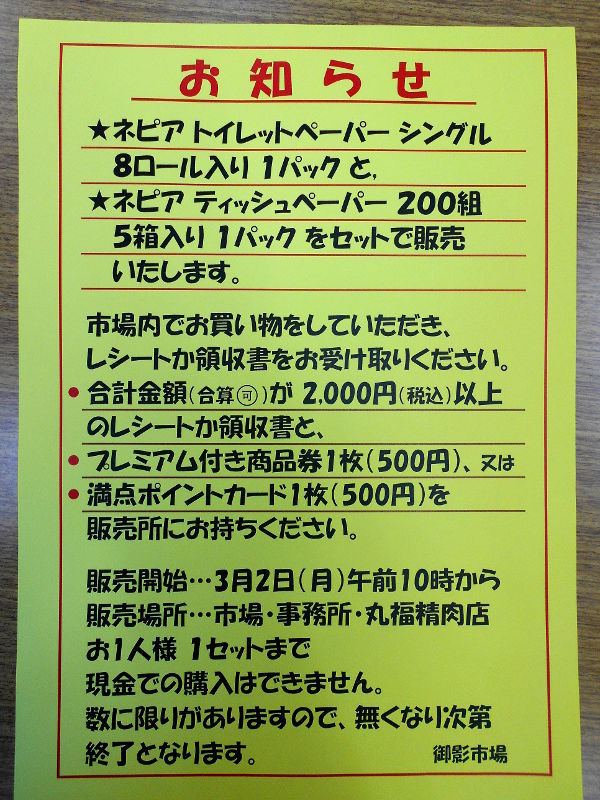 お知らせ
★ネピア トイレットペーパー シングル
8ロール入り 1パック と,
★ネピア ティッシュペーパー 200組
5箱入り 1パック をセットで販売
いたします。
市場内でお買い物をしていただき、
レシートか領収書をお受け取りください。
•合計金額(合算㊭)が 2,000円(税込)以上
のレシートか領収書と、
•プレミアム付き商品券1枚(500円)、又は
•満点ポイントカード1枚(500円)を
販売所にお持ちください。
販売開始…3月2日(月)午前10時から
販売場所…市場・事務所・丸福精肉店
お1人様 1セットまで
現金での購入はできません。
数に限りがありますので、無くなり次第
終了となります。 御影市場